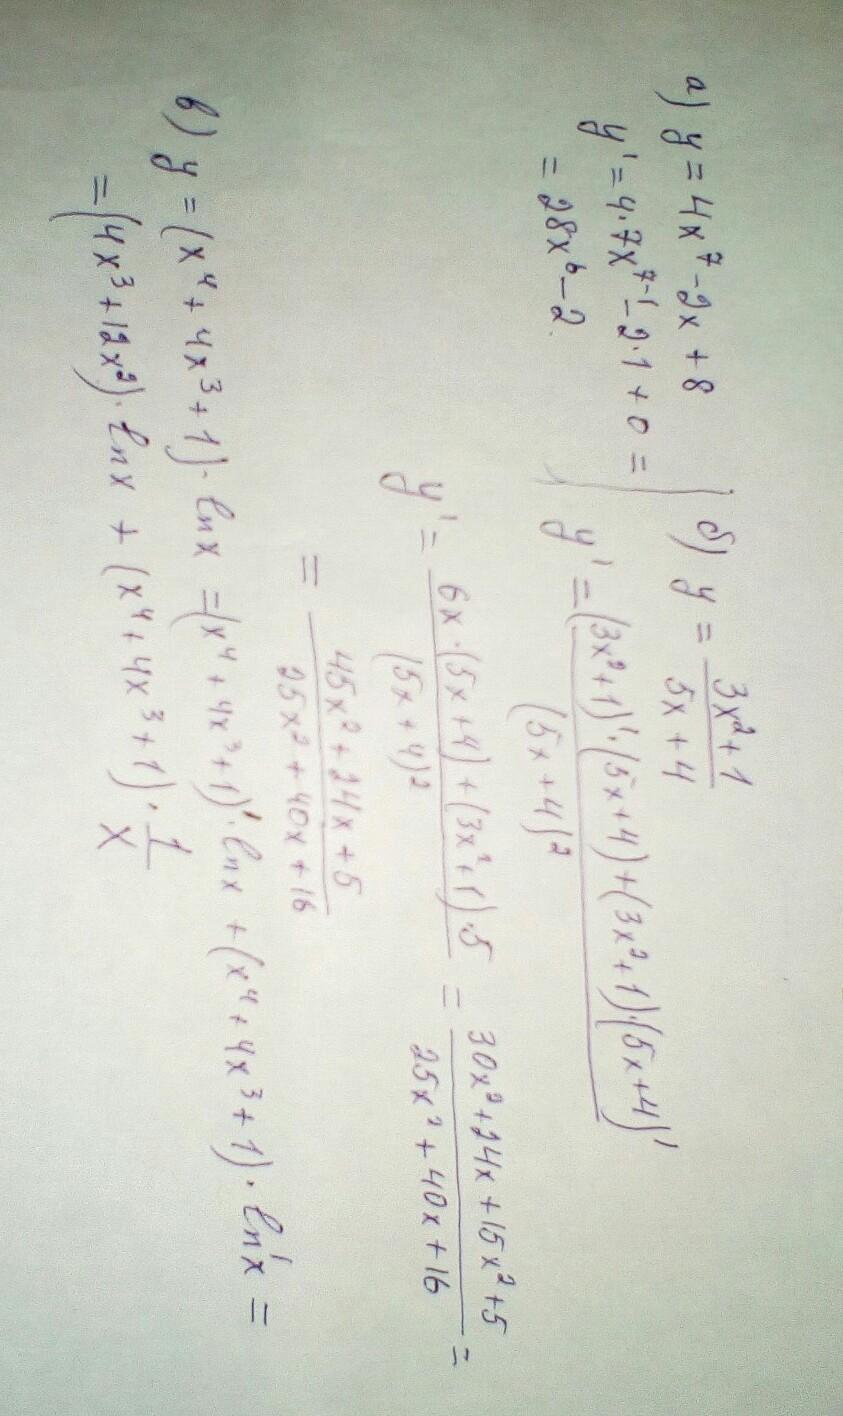 а) y = 4x⁷ - 2x + 8
y' = 4·7x⁷⁻¹ - 2·1 + 0 =
= 28x⁶ - 2.
б) y = (3x² + 1)/(5x + 4)
y' = ((3x² + 1)'·(5x + 4) + (3x² + 1)·(5x + 4)')/(5x + 4)²
y' = (6x·(5x + 4) + (3x² + 1)·5)/(5x + 4)² = (30x² + 24x + 15x² + 5)/(25x² + 40x + 16) =
= (45x² + 24x + 5)/(25x² + 40x + 16)
в) y = (x⁴ + 4x³ + 1)·ln x = (x⁴ + 4x³ + 1)'·ln x + (x⁴ + 4x³ + 1)·ln'x =
= (4x³ + 12x²)·ln x + (x⁴ + 4x³ + 1)·1/x